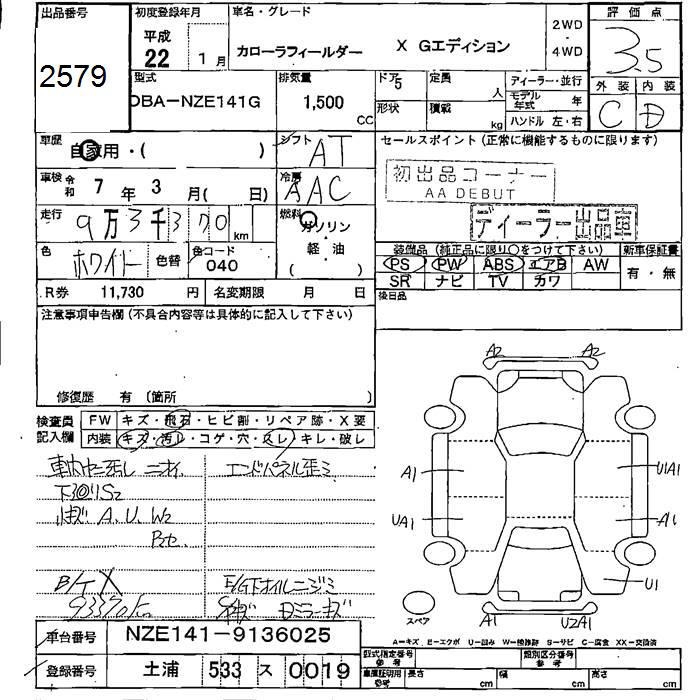 出品番号
2579
初度登録年月
平成
22 1月
車名・グレード
カローラフィールダー X Gエディション
2WD
・
4WD
評価点
3.5
外装 内装
C D
型式
DBA-NZE141G
排気量
1,500 CC
ドア 5
定員 人
形状
積載 kg
ディーラー・並行
モデル年式 年
ハンドル 左・右
車歴
自家用・( )
シフト
AT
車検 令和 7年 3月( 日)
冷房
AAC
走行
9万3千370 km
燃料
ガソリン
・
軽・油
( )
色
ホワイト
色替
色コード
040
R券 11,730 円
名変期限 月 日
セールスポイント(正常に機能するものに限ります)
初出品コーナー
AA DEBUT
ディーラー出品車
装備品(純正品に限り○をつけて下さい)
新車保証書
PS PW ABS エアB AW
SR ナビ TV カワ
有・無
後日品
注意事項申告欄(不具合内容等は具体的に記入して下さい)
修復歴 有(箇所 )
検査員
記入欄
FW キズ・飛石・ヒビ割・リペア跡・X要
内装 キズ・汚レ・コゲ・穴・スレ・キレ・破レ
エンドパネル歪ミ
下回りS2
A.U.W2
B/T X
93370km
E/G下オイルニジミ
A2 A2
A1 U1A1
UA1 A1
U1
スペア
A1 U2A1
A=キズ E=エクボ U=凹み W=修跡 S=サビ C=腐食 XX=交換済
車台番号 NZE141-9136025
登録番号 土浦 533 ス 0019
型式指定番号
参考
類別区分番号
参考
車庫証明用
参考
長さ cm 幅 cm 高さ cm